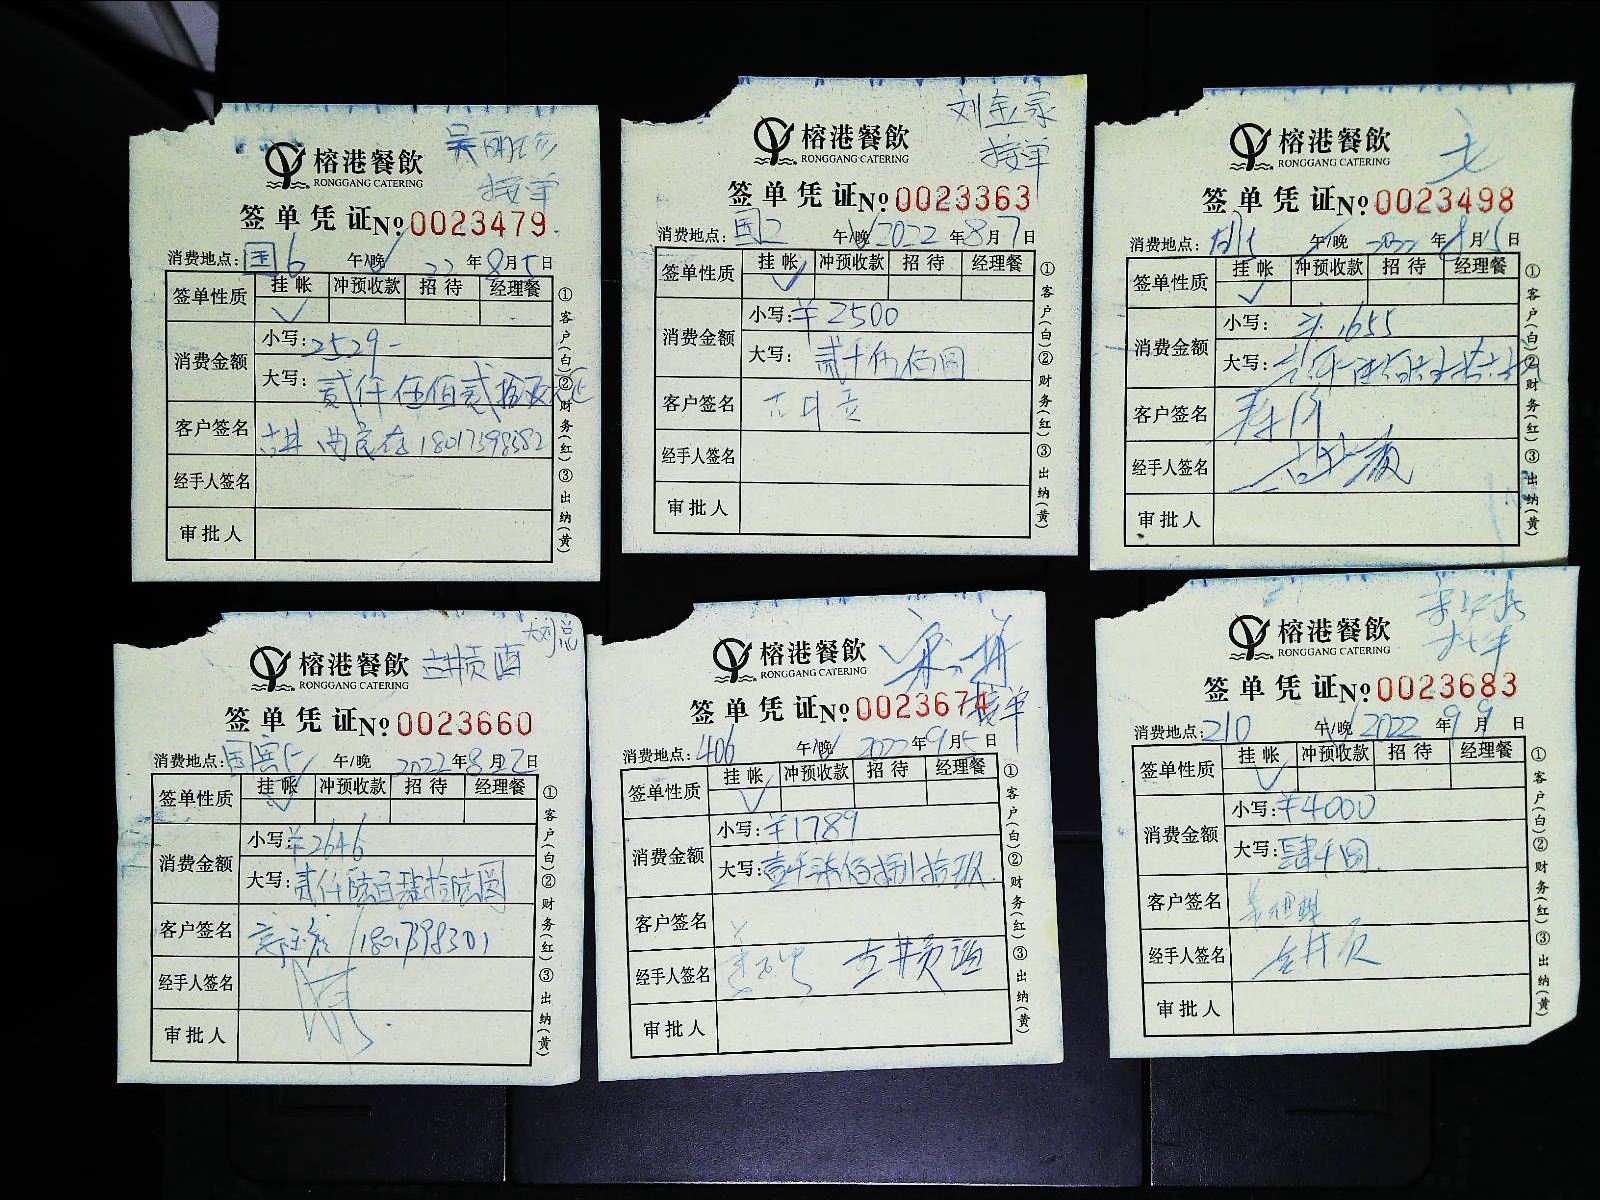 吴丽珍
接单
榕港餐飲
RONGGANG CATERING
签单凭证 No 0023479
消费地点: 国6 午/晚 22年8月5日
签单性质 挂帐 冲预收款 招待 经理餐
消费金额 小写: 2529-
大写: 贰仟伍佰贰拾玖元
客户签名 古井 18017398382
经手人签名
审批人
①客户(白)②财务(红)③出纳(黄)
刘金家
接单
榕港餐飲
RONGGANG CATERING
签单凭证 No 0023363
消费地点: 国2 午/晚 2022年8月7日
签单性质 挂帐 冲预收款 招待 经理餐
消费金额 小写: ¥2500
大写: 贰千伍佰圆
客户签名
经手人签名
审批人
①客户(白)②财务(红)③出纳(黄)
榕港餐飲
RONGGANG CATERING
签单凭证 No 0023498
消费地点: 午/晚 2022年8月15日
签单性质 挂帐 冲预收款 招待 经理餐
消费金额 小写: ¥1655
大写:
客户签名
经手人签名
审批人
①客户(白)②财务(红)③出纳(黄)
大刘总
古井贡酒
榕港餐飲
RONGGANG CATERING
签单凭证 No 0023660
消费地点: 国宾 午/晚 2022年8月22日
签单性质 挂帐 冲预收款 招待 经理餐
消费金额 小写: ¥2646
大写: 贰仟陆百肆拾陆圆
客户签名 18017398301
经手人签名
审批人
①客户(白)②财务(红)③出纳(黄)
接单
榕港餐飲
RONGGANG CATERING
签单凭证 No 0023674
消费地点: 406 午/晚 2022年9月5日
签单性质 挂帐 冲预收款 招待 经理餐
消费金额 小写: ¥1789
大写: 壹千柒佰捌拾玖
客户签名
经手人签名 古井贡酒
审批人
①客户(白)②财务(红)③出纳(黄)
榕港餐飲
RONGGANG CATERING
签单凭证 No 0023683
消费地点: 210 午/晚 2022年9月9日
签单性质 挂帐 冲预收款 招待 经理餐
消费金额 小写: ¥4000
大写: 肆千圆
客户签名
经手人签名 古井贡
审批人
①客户(白)②财务(红)③出纳(黄)